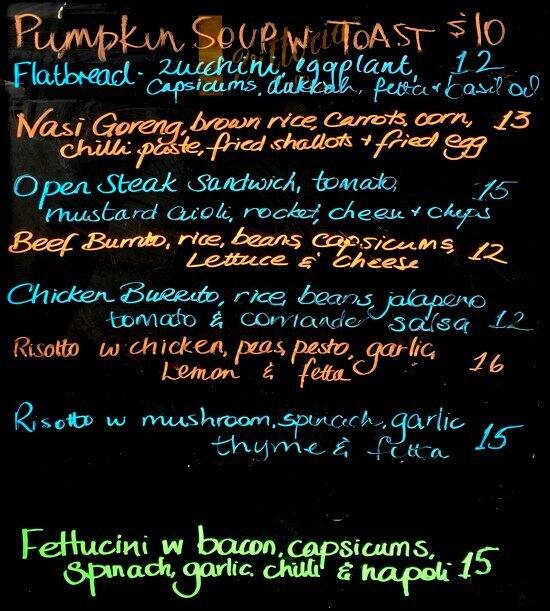 Pumpkin Soup w Toast $10
Flatbread - zucchini, eggplant, 12
capsicums, dukkah, fetta + basil oil
Nasi Goreng, brown rice, carrots, corn, 13
chilli paste, fried shallots + fried egg
Open Steak Sandwich, tomato, 15
mustard aioli, rocket, cheese + chips
Beef Burrito, rice, beans, capsicums, 12
Lettuce & cheese
Chicken Burrito, rice, beans, jalapeno
tomato & coriander salsa 12
Risotto w chicken, peas, pesto, garlic, 16
Lemon & fetta
Risotto w mushroom, spinach, garlic 15
thyme & fetta
Fettucini w bacon, capsicums, 15
Spinach, garlic, chilli & napoli